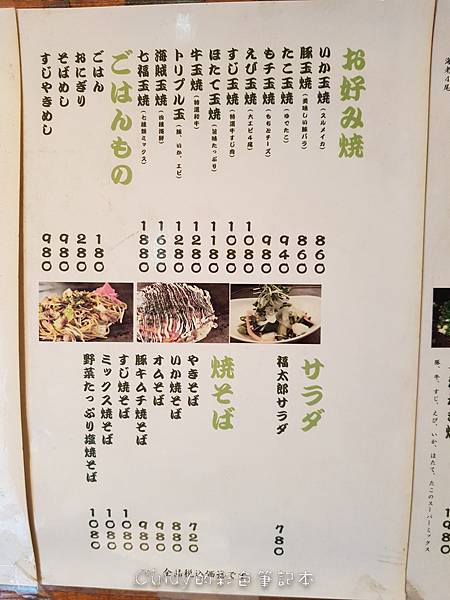 お好み焼
いか玉焼(スルメイカ) 860
豚玉焼(美味しい豚バラ) 860
たこ玉焼(ゆでたこ) 940
もチ玉焼(もちとチーズ) 980
えび玉焼(大エビ4尾) 1080
すじ玉焼(特選牛すじ肉) 1080
ほたて玉焼(旨味たっぷり) 1180
牛玉焼(特選和牛) 1280
トリプル玉(豚、いか、エビ) 1280
海賊玉焼(四種海鮮) 1680
七福玉焼(七種類ミックス) 1880
ごはんもの
ごはん 180
おにぎり 280
そばめし 980
すじやきめし 980
サラダ
福太郎サラダ 780
焼そば
やきそば 720
いか焼そば 880
オムそば 980
豚キムチ焼そば 980
すじ焼そば 1080
ミックス焼そば 1080
野菜たっぷり塩焼そば 1080
全品税込価格です
海老4尾
豚、牛、すじ、えび、いか、ほたて、たこのスーパーミックス
Cindy的彩色筆記本